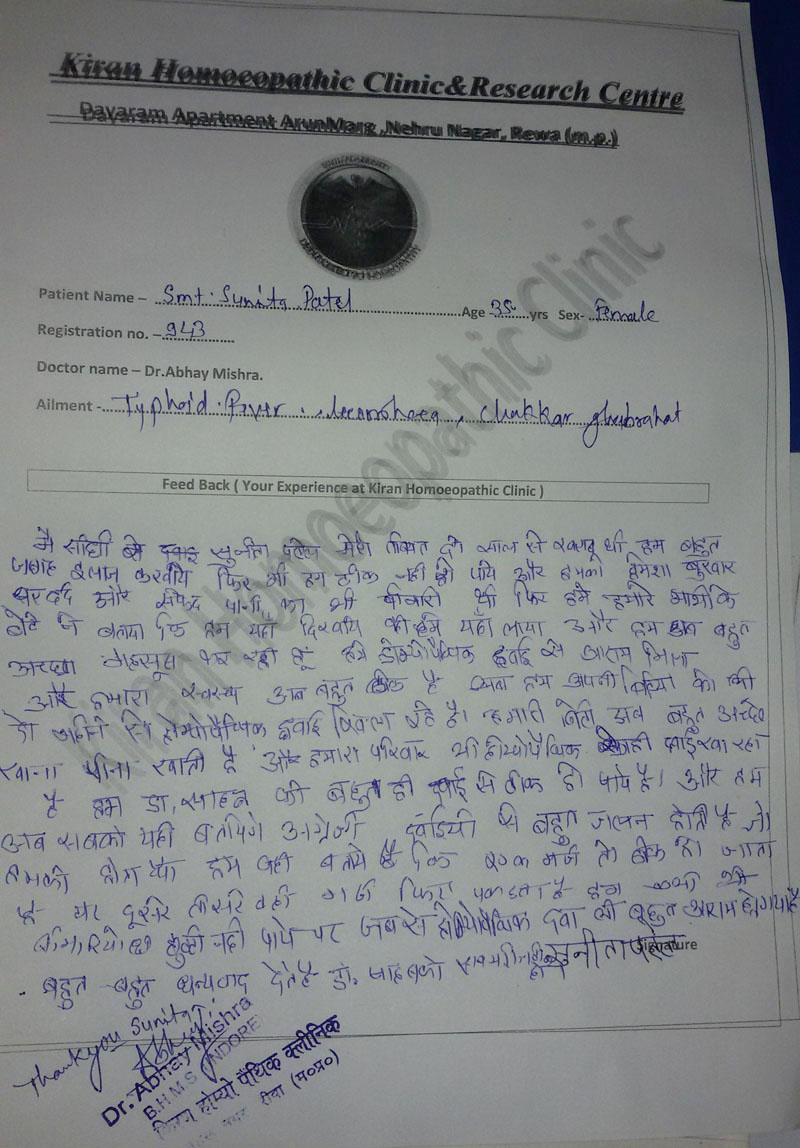 Kiran Homoeopathic Clinic&Research Centre
Dayaram Apartment ArunMarg ,Nehru Nagar, Rewa (m.p.)
Patient Name – Smt. Sunita Patel Age 35 yrs Sex- Female
Registration no. – 943
Doctor name – Dr.Abhay Mishra.
Ailment - Typhoid Fever, , Chakkar ghabrahat
Kiran Homoeopathic Clinic
Feed Back ( Your Experience at Kiran Homoeopathic Clinic )
मै सीधी से सुनीता पटेल मेरी तबियत दो साल से खराब थी हम बहुत
जगह इलाज करवाये फिर भी हम ठीक नही हो पाये और हमको हमेशा बुखार
सरदर्द और सफेद पानी का भी बीमारी थी फिर हमे हमारे
बेटे ने बताया कि हम यहाँ दिखाये वो हमे यहाँ लाया और हम अब बहुत
अच्छा महसूस कर रही हूँ हमे होम्योपैथिक दवाई से आराम मिला
और हमारा स्वस्थ अब बहुत ठीक है अब हम अपनी बिटिया को भी
दो महीने से होम्योपैथिक दवाई खिला रहे है। हमारी बेटी अब बहुत अच्छे
खाना पीना खाती है और हमारा परिवार भी होम्योपैथिक दवाई खा रहा
है हम डा. साहब की बहुत ही दवाई से ठीक हो पाये है। और हम
अब सबको यही बतायेगे अग्रेजी दवाईयो से बहुत जलन होती है जो
हमको होता था हम यही बताये है कि एक मर्ज तो ठीक हो जाता
है पर दूसरे तीसरे वही मर्ज फिर पकडता है हम कभी भी
बीमारियो से छुट्टी नही पाये पर जबसे होम्योपैथिक दवा ली बहुत आराम हो गया है
बहुत बहुत धन्यवाद देते है डॉ. साहब को
सुनीता पटेल
Signature
Thankyou Sunita
Dr. Abhay Mishra
B.H.M.S (INDORE)
किरन होम्यो पैथिक क्लीनिक
रीवा (म०प्र०)